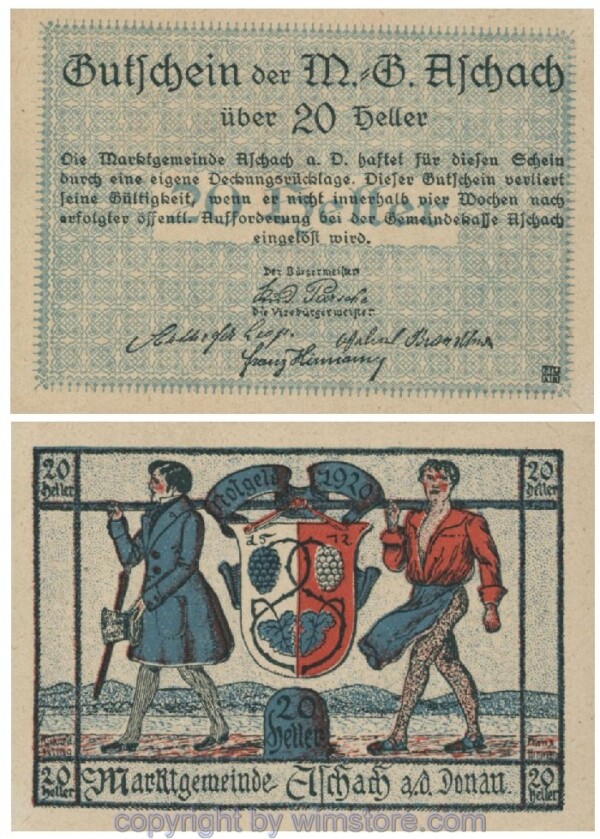 Gutschein der M.-G. Aschach
über 20 Heller
Die Marktgemeinde Aschach a. D. haftet für diesen Schein
durch eine eigene Deckungsrücklage. Dieser Gutschein verliert
seine Gültigkeit, wenn er nicht innerhalb vier Wochen nach
erfolgter öffentl. Aufforderung bei der Gemeindekasse Aschach
eingelöst wird.
20 Heller
Der Bürgermeister
Die Vizebürgermeister
20 Heller
20 Heller
Notgeld 1920
15 72
20
Heller
20 Heller
20 Heller
Marktgemeinde Aschach a/d. Donau.
copyright by wimstore.com